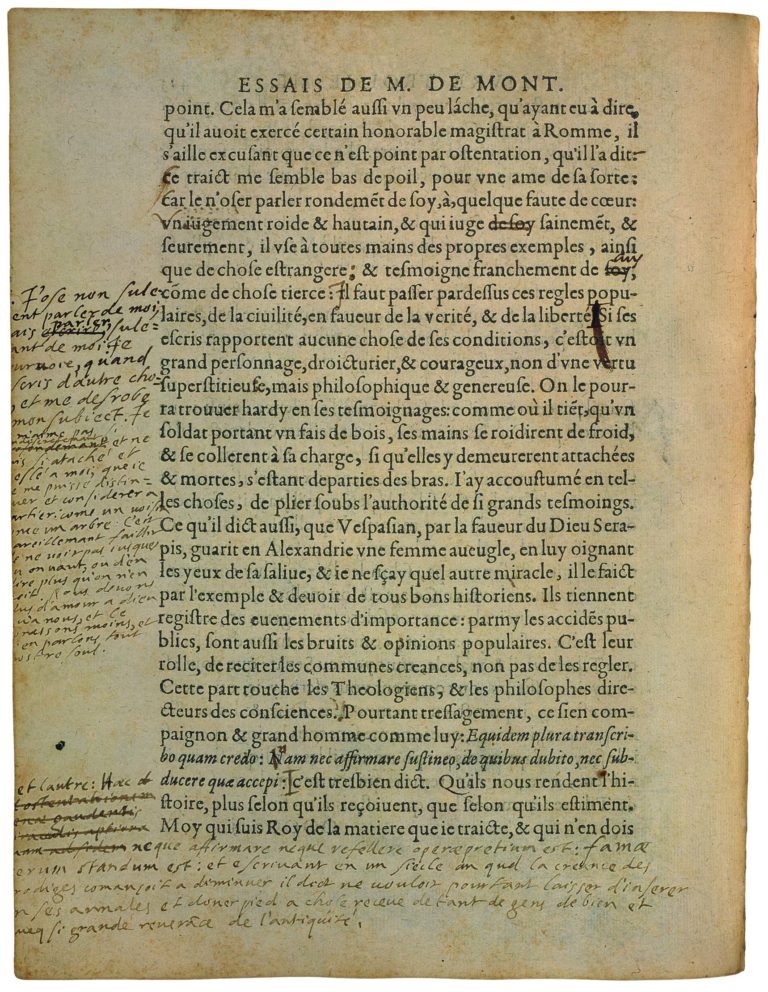 ESSAIS DE M. DE MONT.
point. Cela m'a semblé aussi vn peu láche, qu'ayant eu à dire,
qu'il auoit exercé certain honorable magistrat à Romme, il
s'aille excusant que ce n'est point par ostentation, qu'il l'a dit:
Ce traict me semble bas de poil, pour vne ame de sa sorte:
Car le n'oser parler rondemẽt de soy, à, quelque faute de cœur:
Vn iugement roide & hautain, & qui iuge de soy sainemẽt, &
seurement, il vse à toutes mains des propres exemples, ainsi
que de chose estrangere: & tesmoigne franchement de luy,
cõme de chose tierce: Il faut passer pardessus ces regles popu-
laires, de la ciuilité, en faueur de la verité, & de la liberté. Si ses
escris rapportent aucune chose de ses conditions, c'estoit vn
grand personnage, droicturier, & courageux, non d'vne vertu
superstitieuse, mais philosophique & genereuse. On le pour-
ra trouuer hardy en ses tesmoignages: comme où il tiẽt, qu'vn
soldat portant vn fais de bois, ses mains se roidirent de froid,
& se collerent à sa charge, si qu'elles y demeurerent attachées
& mortes, s'estant departies des bras. I'ay accoustumé en tel-
les choses, de plier soubs l'authorité de si grands tesmoings.
Ce qu'il dict aussi, que Vespasian, par la faueur du Dieu Sera-
pis, guarit en Alexandrie vne femme aueugle, en luy oignant
les yeux de sa saliue, & ie ne sçay quel autre miracle, il le faict
par l'exemple & deuoir de tous bons historiens. Ils tiennent
registre des euenements d'importance: parmy les accidẽs pu-
blics, sont aussi les bruits & opinions populaires. C'est leur
rolle, de reciter les communes creances, non pas de les regler.
Cette part touche les Theologiens, & les philosophes dire-
cteurs des consciences. Pourtant tressagement, ce sien com-
paignon & grand homme comme luy: Equidem plura transcri-
bo quam credo: Nam nec affirmare sustineo, de quibus dubito, nec sub-
ducere quæ accepi: c'est tresbien dict. Qu'ils nous rendent l'hi-
stoire, plus selon qu'ils reçoiuent, que selon qu'ils estiment.
Moy qui suis Roy de la matiere que ie traicte, & qui n'en dois
J'ose non sule-
ent parler de moi,
parler sule-
ant de moi. Je
urvoie, quand
scris d'autre cho-
et me desrobe
mon subiect. Je
et ne
atache et
esle a moi, que ie
me puisse distin-
uer et considerer a
artier: come un voisin
me un arbre. C'est
areillemant faillir
ne voir pas iusques
on vaut, ou d'en
ire plus qu'on n'en
oit. Nous devons
lus d'amour a dieu
u'a nous, et le
onaissons moins, et
en parlons tout
ostre soul.
et l'autre: Haec
neque affirmare neque refellere operæpretium est: famæ
erum standum est: et escrivant en un siecle au quel la creance des
rodiges comansoit a diminuer il dict ne vouloir pourtant laisser d'inserer
n ses annales et doner pied a chose receve de tant de gens de bien et
aveq si grande reverance de l'antiquité.